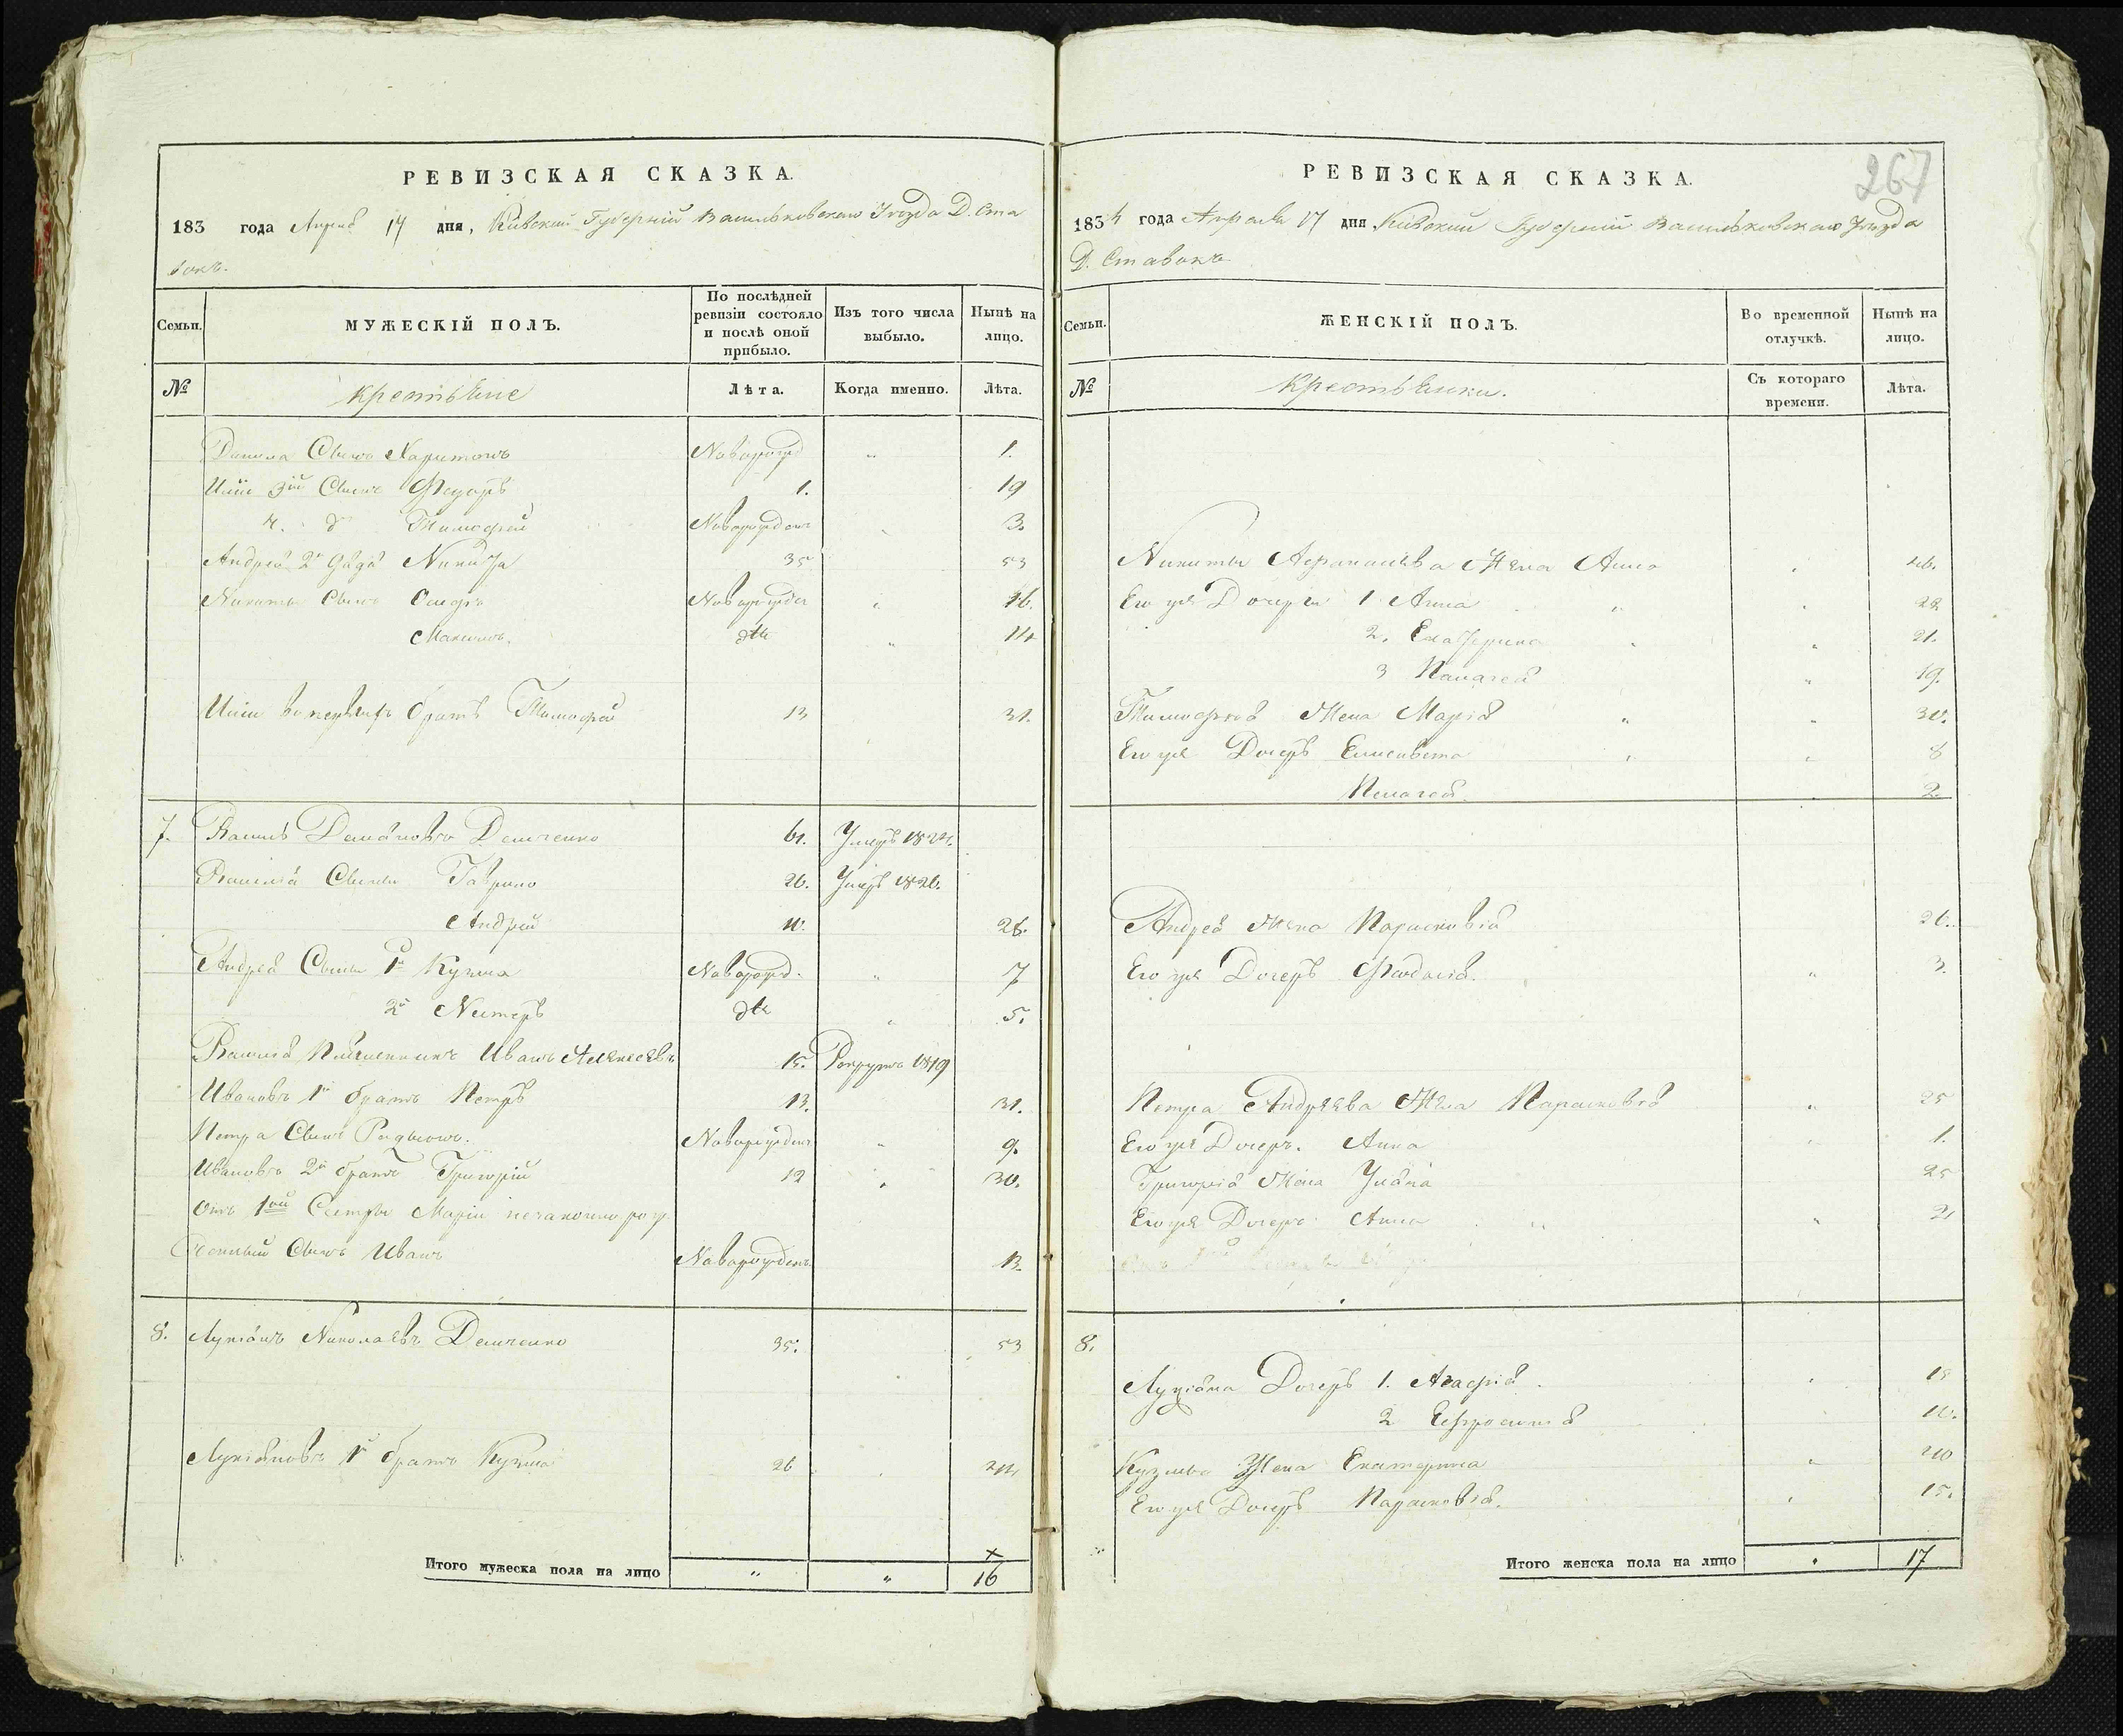 РЕВИЗСКАЯ СКАЗКА.
183 года Апреля 17 дня, Кіевской Губерніи Васильковскаго Уезда Д. Ста
вокъ.
Семьи.
МУЖЕСКІЙ ПОЛЪ.
По послѣдней ревизіи состояло и послѣ оной прибыло.
Изъ того числа выбыло.
Нынѣ на лицо.
№ Крестьяне Лѣта. Когда именно. Лѣта.
Данила Сынъ Харитонъ Новорожд " 1.
3й Сынъ Федоръ 1. 19
4. д Тимофей Новорожденъ 3.
Андрея 2й Никита 35 53
Никиты Сынъ Новорожден " 16.
Максимъ. дто " 14
братъ Тимофей 13 31.
7. Василь Демяновъ Демченко 61. Умеръ 1824.
Василія Сыны Гаврило 26. Умеръ 1826.
Андрей 10. 28.
Андрея Сыны 1й Кузма Новорожд. " 7
2й Нестеръ дто " 5.
Василія Племянникъ Иванъ Алексеевъ 15. Рекрутъ 1819
Ивановъ 1й братъ Петръ 13. 31.
Петра Сынъ Родіонъ. Новорожденъ " 9.
Ивановъ 2й братъ Григорій 12 " 30.
Отъ 1ой Сестры Маріи незаконно рож
денный Сынъ Иванъ Новорожденъ 13.
8. Лукіянъ Николаевъ Демченко 35. 53
Лукіяновъ 1й братъ Кузма 26 44
Итого мужеска пола на лицо " " 16
267
РЕВИЗСКАЯ СКАЗКА.
1834 года Апреля 17 дня Кіевской Губерніи Васильковскаго Уезда
Д. Ставокъ
Семьи.
ЖЕНСКІЙ ПОЛЪ.
Во временной отлучкѣ.
Нынѣ на лицо.
№ Крестьянки. Съ котораго времени. Лѣта.
Никиты Афанасьева Жена Анна " 46.
Его же Дочери 1 Анна " 22
2. Екатерина " 21.
3 Палагея " 19.
Тимофея Жена Марія " 30.
Его же Дочерь Елисавета " 8
Пелагея. 2.
Андрея Жена Парасковія 26.
Его же Дочерь Феодосія. " 3.
Петра Андреева Жена Парасковія " 25
Его же Дочерь. Анна " 1.
Григорія Жена Уляна 25
Его же Дочерь Анна " 2
8.
Лукіяна Дочерь 1. Агафія. " 18
2 Ефросинія 10.
Кузмы Жена Екатерина " 40
Его же Дочерь Парасковія. " 15.
Итого женска пола на лицо " 17